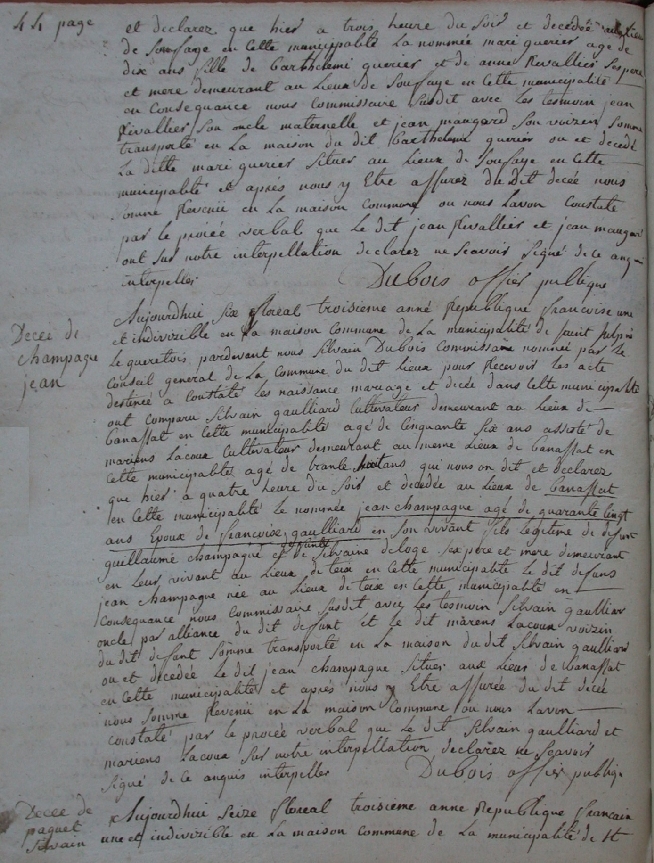 44 page
et declarez que hier a trois heure du Soir et decedée
de Soufaye en Cette municipalité La nommée mari queries age de
dix ans fille de Barthelemi queries et de anne Revallier Ses pere
et mere demeurant au Lieux de Souffaye en Cette municipalité
en Consequance nous Commissaire Susdit avec Les tesmoin jean
Rivallier Son oncle maternelle et jean maugard Son voizin Somme
transporté en La maison du dit Barthelemi queries ou et decedé
La ditte mari queries Situer au Lieux de Souffaye en Cette
municipalité et après nous y Etre assurez du Dit decée nous
Somme Revenue en La maison Commune ou nous Lavon Constaté
par le procée verbal que Le dit jean Revallier et jean maugard
ont Sur notre interpellation declarez ne Scavoir Signé de ce anq-
interpelles
Dubois offier publique
Decee de
champagne
jean
Aujourdhui Six floreal troisieme anné Republique francoise une
et indivizible en La maison Commune de La municipalité de Saint Sulpis
Le queretois pardevant nous Silvain Dubois Commissaire nommée par le
Conseil general de La Commune du dit Lieux pour Recevoir Les acte
destinée a Constaté Les naissance mariage et decée dans Cette municipalité
ont Comparu Silvain gaulliard Cultivateur demeurant au Lieux de
Banassat en Cette municipalité agé de Cinquante Six ans assisté de
mariens Lacoux Cultivateur demeurant au meme Lieux de Banassat en
Cette municipalité agé de trante ans qui nous on dit et declarez
que hier a quatre heure du Soir et decedée au Lieux de Banassat
en Cette municipalité le nommée jean champagne agé de quarante Cinq
ans Epoux de francoise gaulliard en Son vivant fils Legitime de defunt
guillaume champagne et de defunte Silvaine deloge Ses pere et mere demeurant
en Leur vivant au Lieux de teix en Cette municipalité Le dit defunt
jean Champagne née au Lieux de teix en Cette municipalité en
Consequance nous Commissaire Susdit avec Les tesmoin Silvain gaullier
oncle par alliance du dit defunt et Le dit mariens Lacoux voizin
du dit defant Somme transporté en La maison du dit Silvain gaulliard
ou et decedée Le dit jean champagne Situer aux Lieux de Banassat
en Cette municipalité et après nous y Etre assurée du dit decée
nous Somme Revenüe en La maison Commune ou nous Lavon
Constaté par le procée verbal que Le dit Silvain gaulliard et
mariens Lacoux Sur notre interpellation declarez ne Scavoir
Signé de Ce anquis interpelles
Dubois offier publiq.
Decee de
paquet
Silvain
Aujourdhui Seize floreal troisieme anne Republique francain
une et indivizible en La maison Commune de La municipalité de St